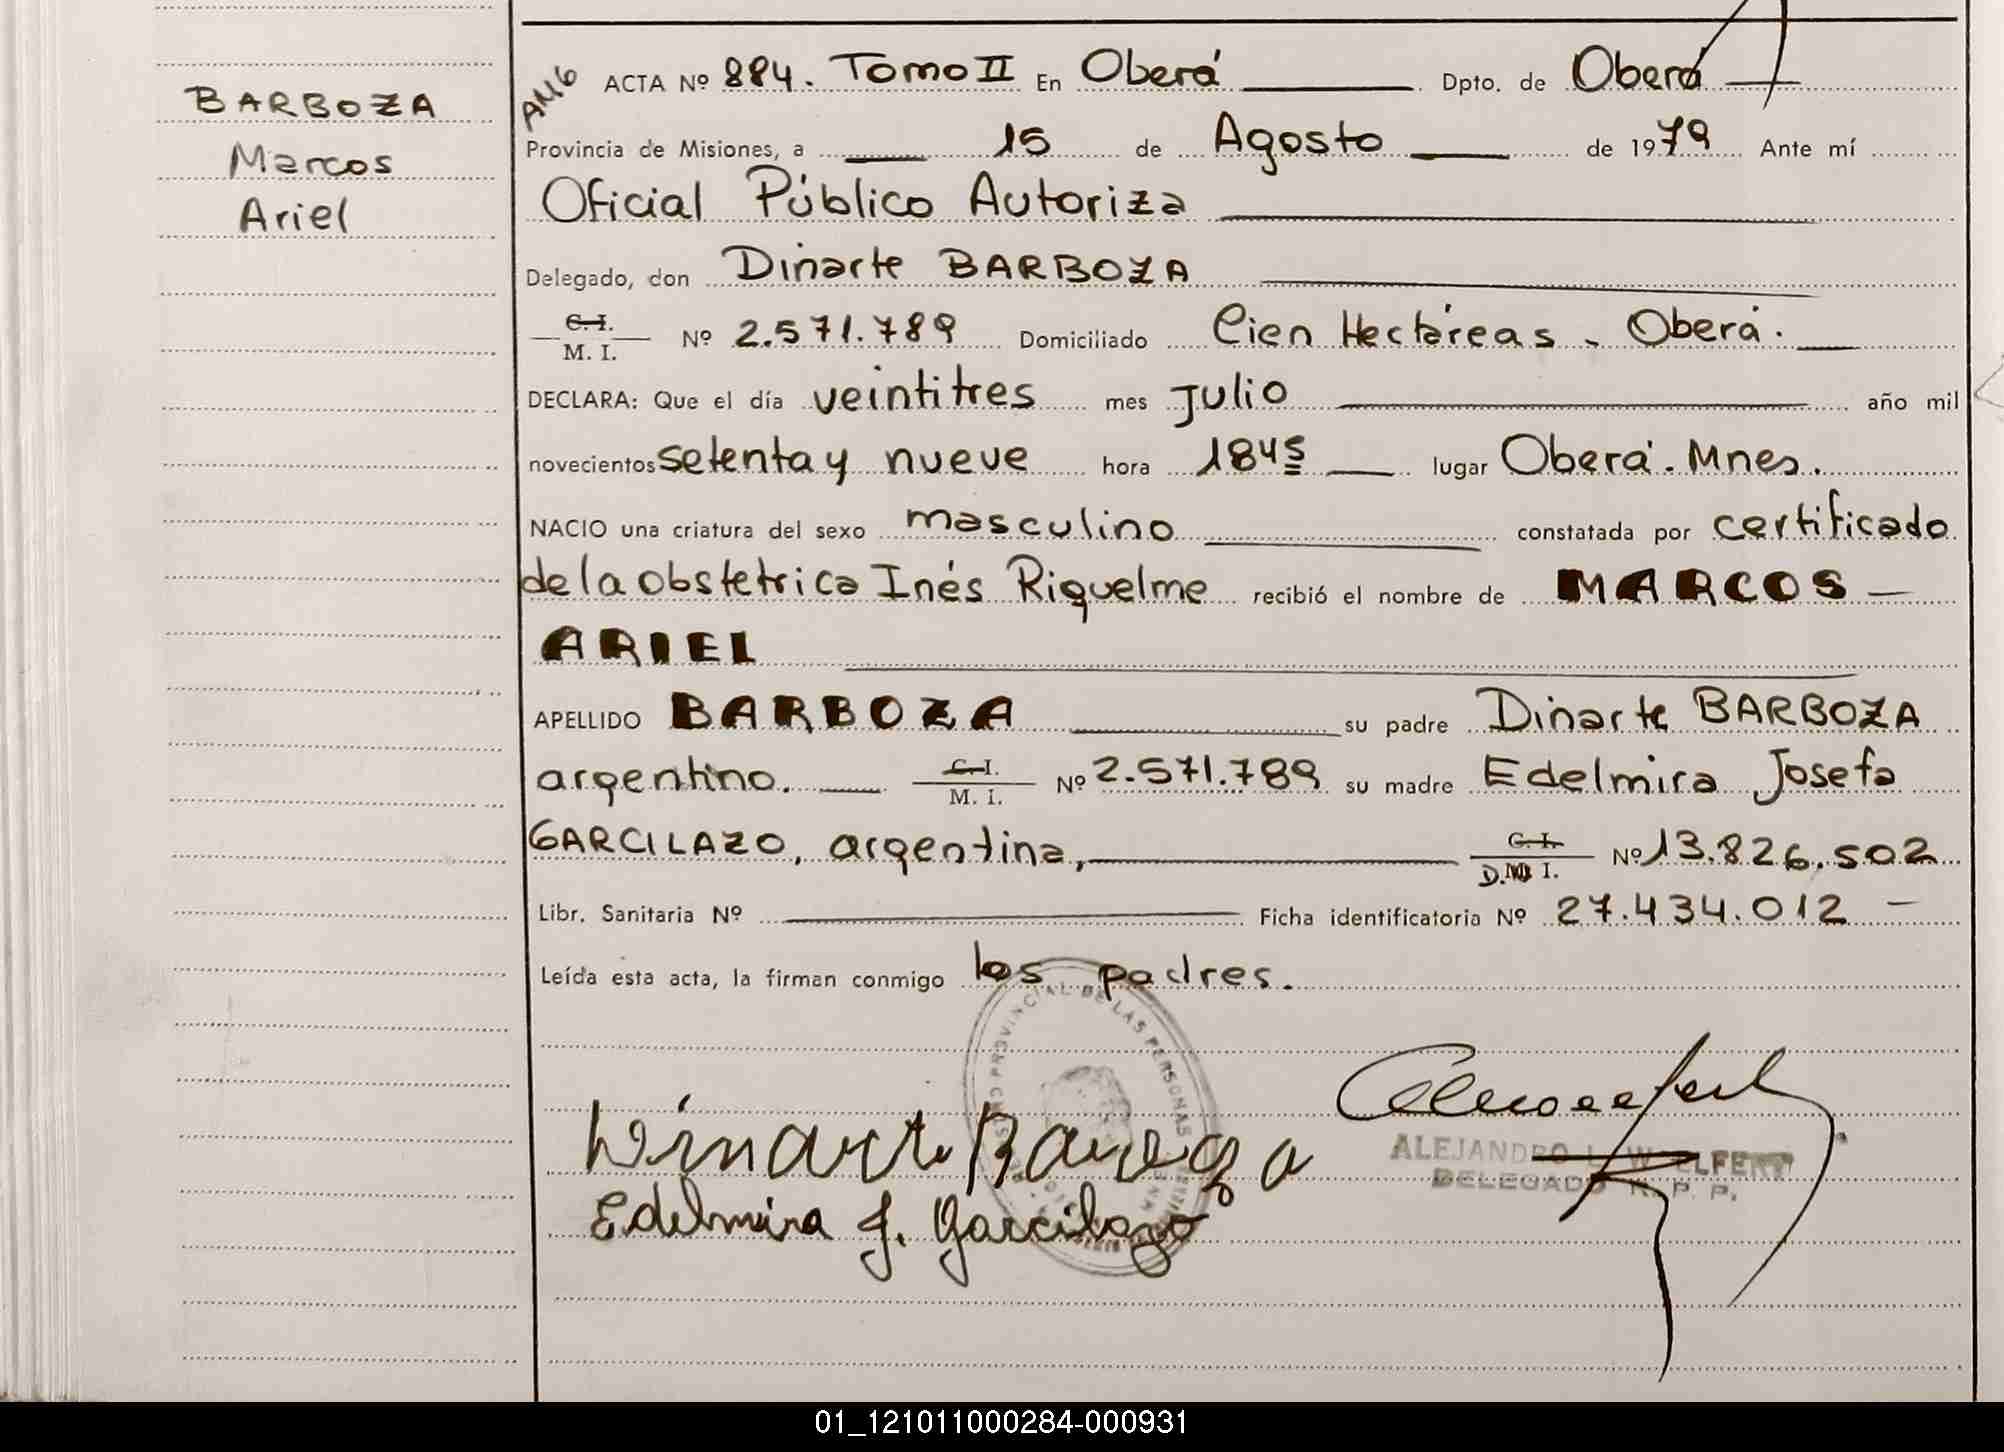 BARBOZA
Marcos
Ariel
AMG ACTA Nº 884. Tomo II En Oberá Dpto. de Oberá
Provincia de Misiones, a 15 de Agosto de 1979 Ante mí
Oficial Público Autoriza
Delegado, don Dinarte BARBOZA
C.I. / M. I. Nº 2.571.789 Domiciliado Cien Hectáreas - Oberá.
DECLARA: Que el día veintitres mes Julio año mil
novecientos setenta y nueve hora 1845 lugar Oberá. Mnes.
NACIO una criatura del sexo masculino constatada por certificado
de la obstetrica Inés Riquelme recibió el nombre de MARCOS
ARIEL
APELLIDO BARBOZA su padre Dinarte BARBOZA
argentino. C.I. / M. I. Nº 2.571.789 su madre Edelmira Josefa
GARCILAZO, argentina, C.I. / D.N.I. Nº 13.826.502
Libr. Sanitaria Nº Ficha identificatoria Nº 27.434.012
Leída esta acta, la firman conmigo los padres.
PROVINCIAL DE LAS PERSONAS
Dinarte Barboza
ALEJANDRO L. W. ELFERT
DELEGADO R. P. P.
Edelmira J. Garcilazo
01_121011000284-000931